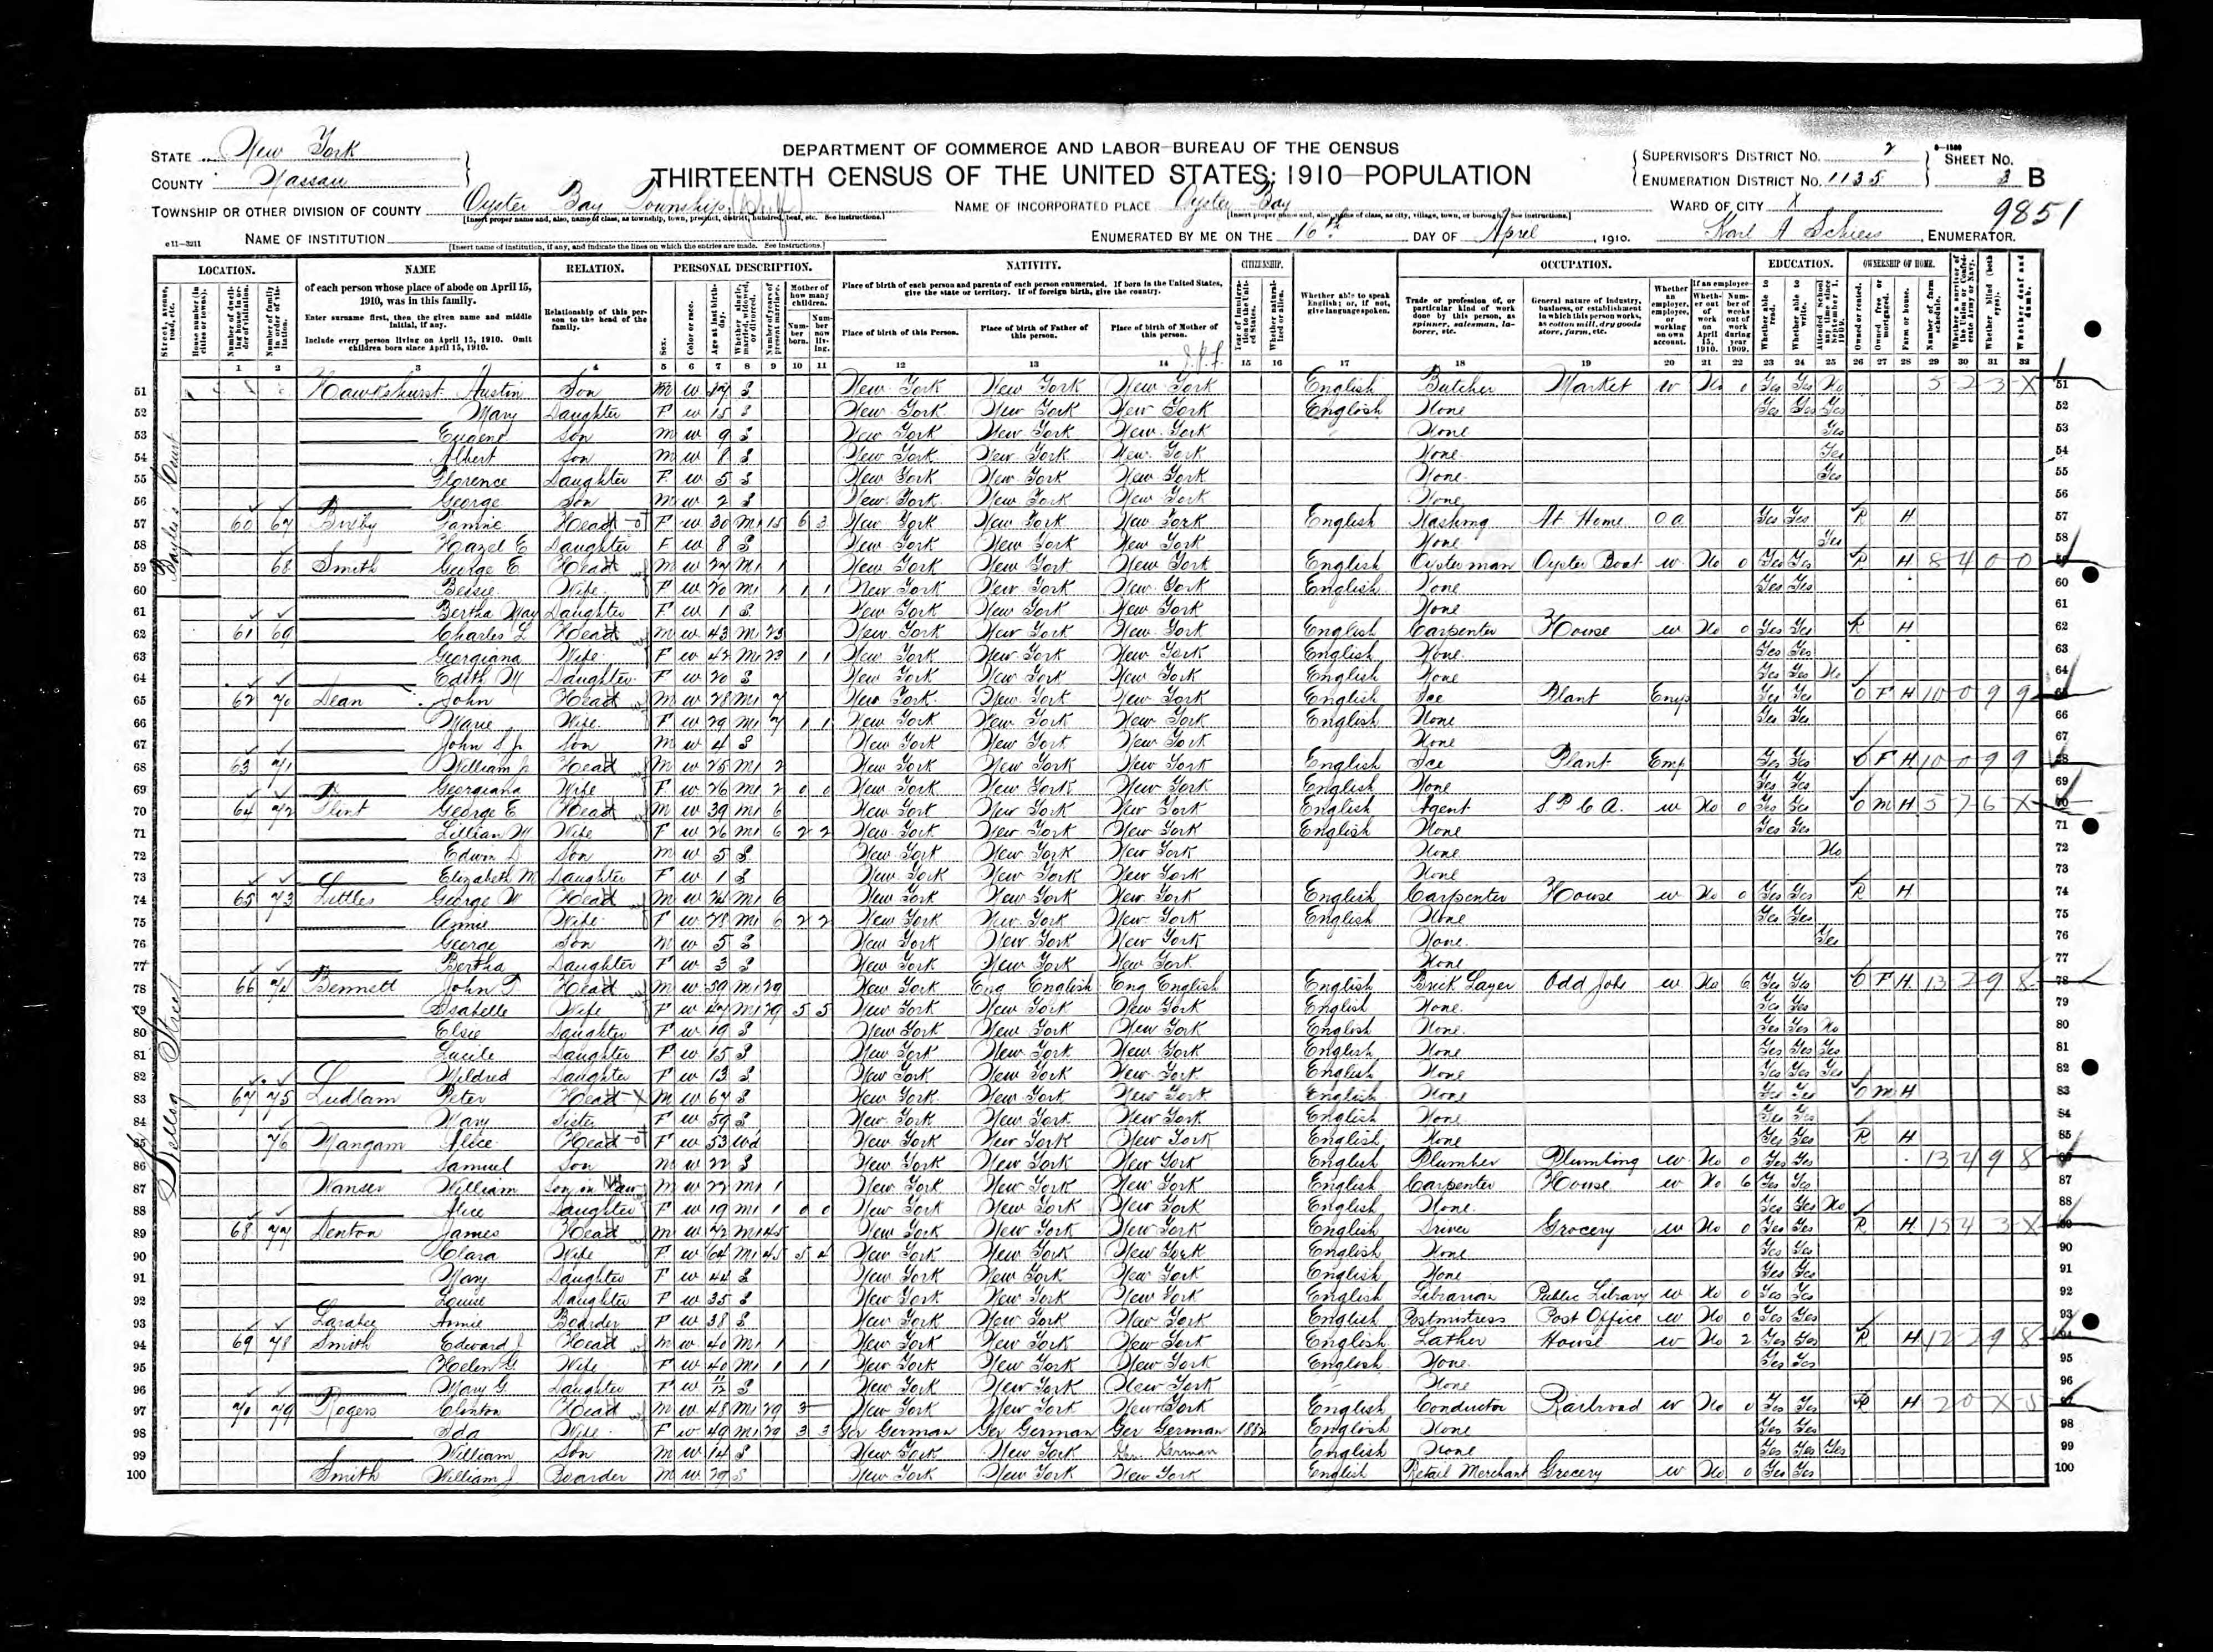 DEPARTMENT OF COMMERCE AND LABOR-BUREAU OF THE CENSUS
THIRTEENTH CENSUS OF THE UNITED STATES: 1910-POPULATION
STATE New York
COUNTY Nassau
TOWNSHIP OR OTHER DIVISION OF COUNTY Oyster Bay Township
NAME OF INSTITUTION
NAME OF INCORPORATED PLACE Oyster Bay
ENUMERATED BY ME ON THE 16th DAY OF April, 1910.
SUPERVISOR'S DISTRICT No. 2
ENUMERATION DISTRICT No. 1135
SHEET No. 3 B
WARD OF CITY X
9851
Karl A Schiess, ENUMERATOR.
LOCATION. NAME RELATION. PERSONAL DESCRIPTION. NATIVITY. CITIZENSHIP. OCCUPATION. EDUCATION. OWNERSHIP OF HOME.
of each person whose place of abode on April 15, 1910, was in this family.
Enter surname first, then the given name and middle initial, if any.
Include every person living on April 15, 1910. Omit children born since April 15, 1910.
Relationship of this person to the head of the family.
Place of birth of each person and parents of each person enumerated. If born in the United States, give the state or territory. If of foreign birth, give the country.
Place of birth of this Person. Place of birth of Father of this person. Place of birth of Mother of this person.
Whether able to speak English; or, if not, give language spoken.
Trade or profession of, or particular kind of work done by this person, as spinner, salesman, laborer, etc.
General nature of industry, business, or establishment in which this person works, as cotton mill, dry goods store, farm, etc.
51 Hawkshurst Austin Son M W 27 S New York New York New York English Butcher Market W No 0 Yes Yes No 5 2 3 X
52 Mary Daughter F W 15 S New York New York New York English None Yes Yes Yes
53 Eugene Son M W 9 S New York New York New York None Yes
54 Albert Son M W 8 S New York New York New York None Yes
55 Florence Daughter F W 5 S New York New York New York None Yes
56 George Son M W 2 S New York New York New York None
57 60 67 Fannie Head F W 30 M1 15 6 3 New York New York New York English Washing At Home OA Yes Yes R H
58 Hazel E Daughter F W 8 S New York New York New York None Yes
59 68 Smith George E Head M W 24 M1 1 New York New York New York English Oysterman Oyster Boat W No 0 Yes Yes R H 8 4 0 0
60 Bessie Wife F W 20 M1 1 1 1 New York New York New York English None Yes Yes
61 Bertha May Daughter F W 1 S New York New York New York None
62 61 69 Charles L Head M W 43 M1 23 New York New York New York English Carpenter House W No 0 Yes Yes R H
63 Georgiana Wife F W 42 M1 23 1 1 New York New York New York English None Yes Yes
64 Edith M Daughter F W 20 S New York New York New York English None Yes Yes No
65 62 70 Dean John Head M W 28 M1 7 New York New York New York English Ice Plant Emp Yes Yes O F H 10 0 9 9
66 Marie Wife F W 29 M1 7 1 1 New York New York New York English None Yes Yes
67 John S Jr Son M W 4 S New York New York New York None
68 63 71 William Jr Head M W 25 M1 2 New York New York New York English Ice Plant Emp Yes Yes O F H 10 0 9 9
69 Georgiana Wife F W 26 M1 2 0 0 New York New York New York English None Yes Yes
70 64 72 Flint George E Head M W 39 M1 6 New York New York New York English Agent S.P.C.A. W No 0 Yes Yes O M H 5 7 6 X
71 Lillian M Wife F W 26 M1 6 2 2 New York New York New York English None Yes Yes
72 Edwin D Son M W 5 S New York New York New York None No
73 Elizabeth M Daughter F W 1 S New York New York New York None
74 65 73 Littles George W Head M W 24 M1 6 New York New York New York English Carpenter House W No 0 Yes Yes R H
75 Annie Wife F W 28 M1 6 2 2 New York New York New York English None Yes Yes
76 George Son M W 5 S New York New York New York None Yes
77 Bertha Daughter F W 3 S New York New York New York None
78 66 74 Bennett John T Head M W 50 M1 29 New York Eng English Eng English English Brick Layer Odd Jobs W No 6 Yes Yes O F H 13 2 9 8
79 Isabelle Wife F W 47 M1 29 5 5 New York New York New York English None Yes Yes
80 Elsie Daughter F W 19 S New York New York New York English None Yes Yes No
81 Lucile Daughter F W 15 S New York New York New York English None Yes Yes Yes
82 Mildred Daughter F W 13 S New York New York New York English None Yes Yes Yes
83 67 75 Ludlam Peter Head X M W 67 S New York New York New York English None Yes Yes O M H
84 Mary Sister F W 59 S New York New York New York English None Yes Yes
85 76 Mangam Alice Head F W 53 Wd New York New York New York English None Yes Yes R H
86 Samuel Son M W 22 S New York New York New York English Plumber Plumbing W No 0 Yes Yes 13 4 9 8
87 Wanser William Son in law M W 22 M1 1 New York New York New York English Carpenter House W No 6 Yes Yes
88 Alice Daughter F W 19 M1 1 0 0 New York New York New York English None Yes Yes No
89 68 77 Denton James Head M W 72 M1 45 New York New York New York English Driver Grocery W No 0 Yes Yes R H 15 4 3 X
90 Clara Wife F W 64 M1 45 5 4 New York New York New York English None Yes Yes
91 Mary Daughter F W 44 S New York New York New York English None Yes Yes
92 Louise Daughter F W 35 S New York New York New York English Librarian Public Library W No 0 Yes Yes
93 Larabee Annie Boarder F W 38 S New York New York New York English Postmistress Post Office W No 0 Yes Yes
94 69 78 Smith Edward J Head M W 40 M1 1 New York New York New York English Lather House W No 2 Yes Yes R H 12 2 9 8
95 Helen G Wife F W 40 M1 1 1 1 New York New York New York English None Yes Yes
96 Mary G. Daughter F W 11/12 S New York New York New York None
97 70 79 Rogers Clinton Head M W 48 M1 29 3 New York New York New York English Conductor Railroad W No 0 Yes Yes R H 2 0 X 5
98 Ada Wife F W 49 M1 29 3 3 Ger German Ger German Ger German 1882 English None Yes Yes
99 William Son M W 14 S New York New York Ger German English None Yes Yes Yes
100 Smith William J Boarder M W 29 S New York New York New York English Retail Merchant Grocery W No 0 Yes Yes